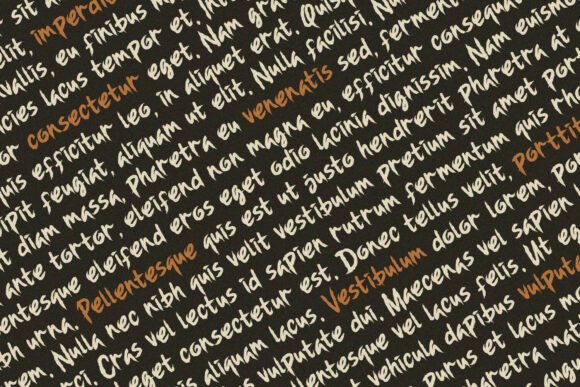 sit
elit, imperdi
vallis, eu finibus
cies lacus tempor et,
consectetur eget. Nam gra
uis efficitur leo, in aliquet erat. Quis
ipit feugiat, aliquam ut elit. Nulla facilisi. N
t diam massa, pharetra eu venenatis sed, fermen
ante tortor, eleifend non magna eu, efficitur conseque
entesque eleifend eros eget odio lacinia dignissim. Nam euism
bh urna. Pellentesque quis est ut justo hendrerit pharetra at
em. Nulla nec nibh quis velit vestibulum pretium sit amet por
rci. Cras vel lectus id sapien rutrum fermentum quis rh
eget consectetur est. Donec tellus velit, porttit
aliquam lacus. Vestibulum dolor lorem, po
vulputate dui. Maecenas vel sapien
entesque vel lacus felis. Ut eg
vehicula dapibus vulputa
purus et